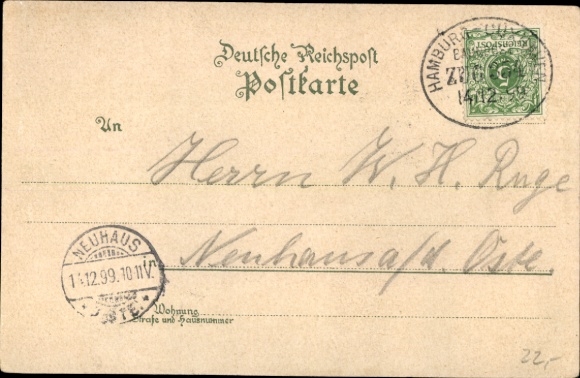 Deutsche Reichspost
Postkarte
REICHSPOST
HAMBURG
14.12.99
An
Herrn W. H. Ruge
Neuhaus a/d. Oste.
NEUHAUS
14.12.99.10-11V.
OSTE.
Wohnung
Straße und Hausnummer
22,-